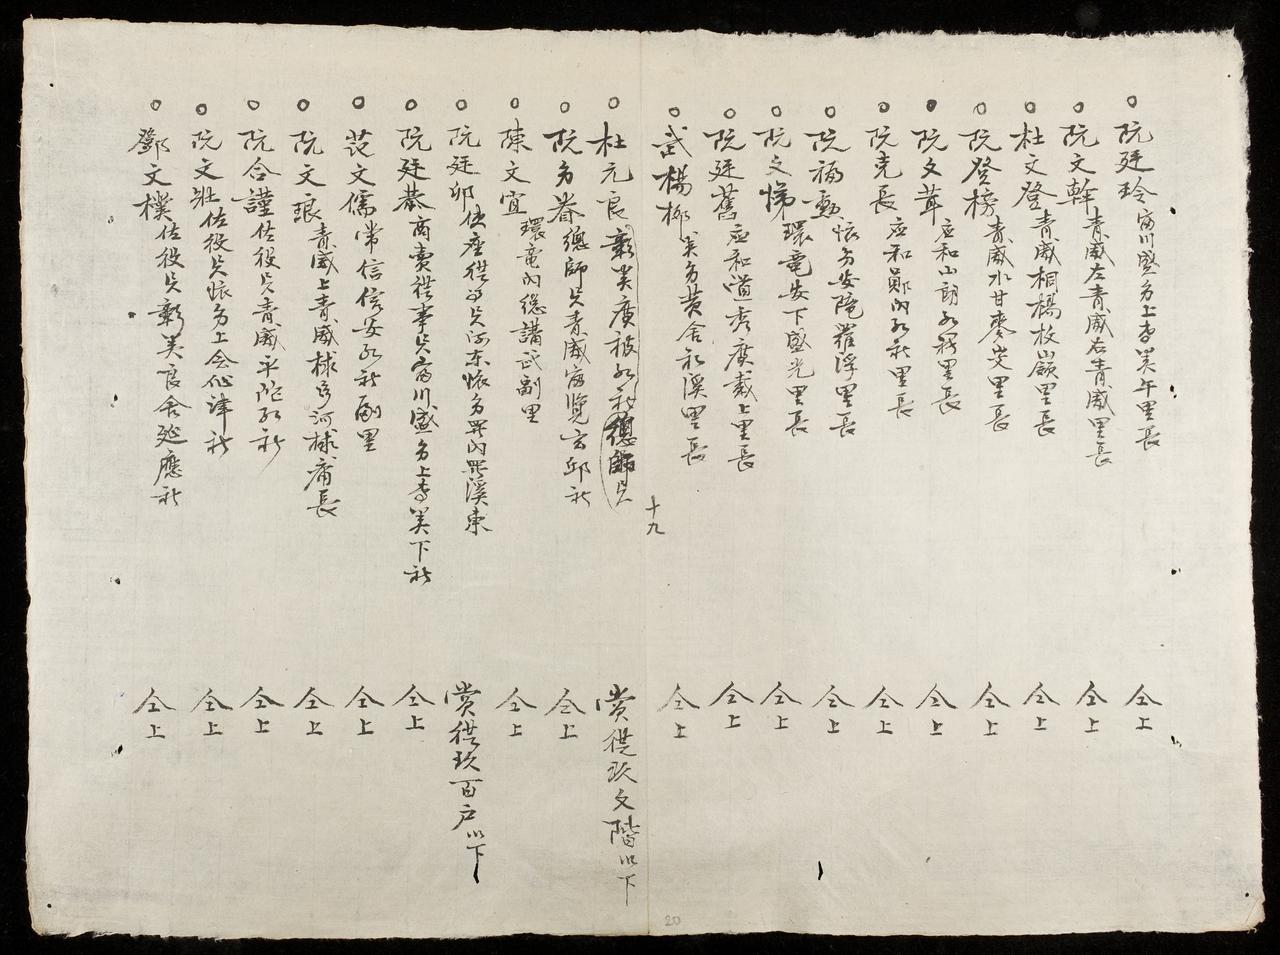 阮廷玲富川盛多上李美午里長 仝上
阮文幹青威左青威右青威里長 仝上
杜文登青威桐楊枚嶺里長 仝上
阮登榜青威水甘棗安里長 仝上
阮文茸应和山朗 里長 仝上
阮克長应和 内 社里長 仝上
阮福勳怀多安 羅浮里長 仝上
阮文悌環竜安下盛光里長 仝上
阮廷舊应和道秀廣戴上里長 仝上
武楊柳美多黃舍社溪里長 仝上
十九
杜元良彰美廣被 社總師員 賞供玖文階以下
阮多眷總師員青威富覽玄邱社 仝上
陳文宜環竜内總講武副里 仝上
阮廷卯使座供 員河东怀多 内 溪東 賞供玖百戶以下
阮廷恭商賣供事員富川盛多上李美下社 仝上
范文儒常信信安 社副里 仝上
阮文琅青威上青威 河 庸長 仝上
阮合謹佐役員青威平陀 社 仝上
阮文壯佐役員怀多上会 津社 仝上
鄧文樸佐役員彰美良舍延應社 仝上
20